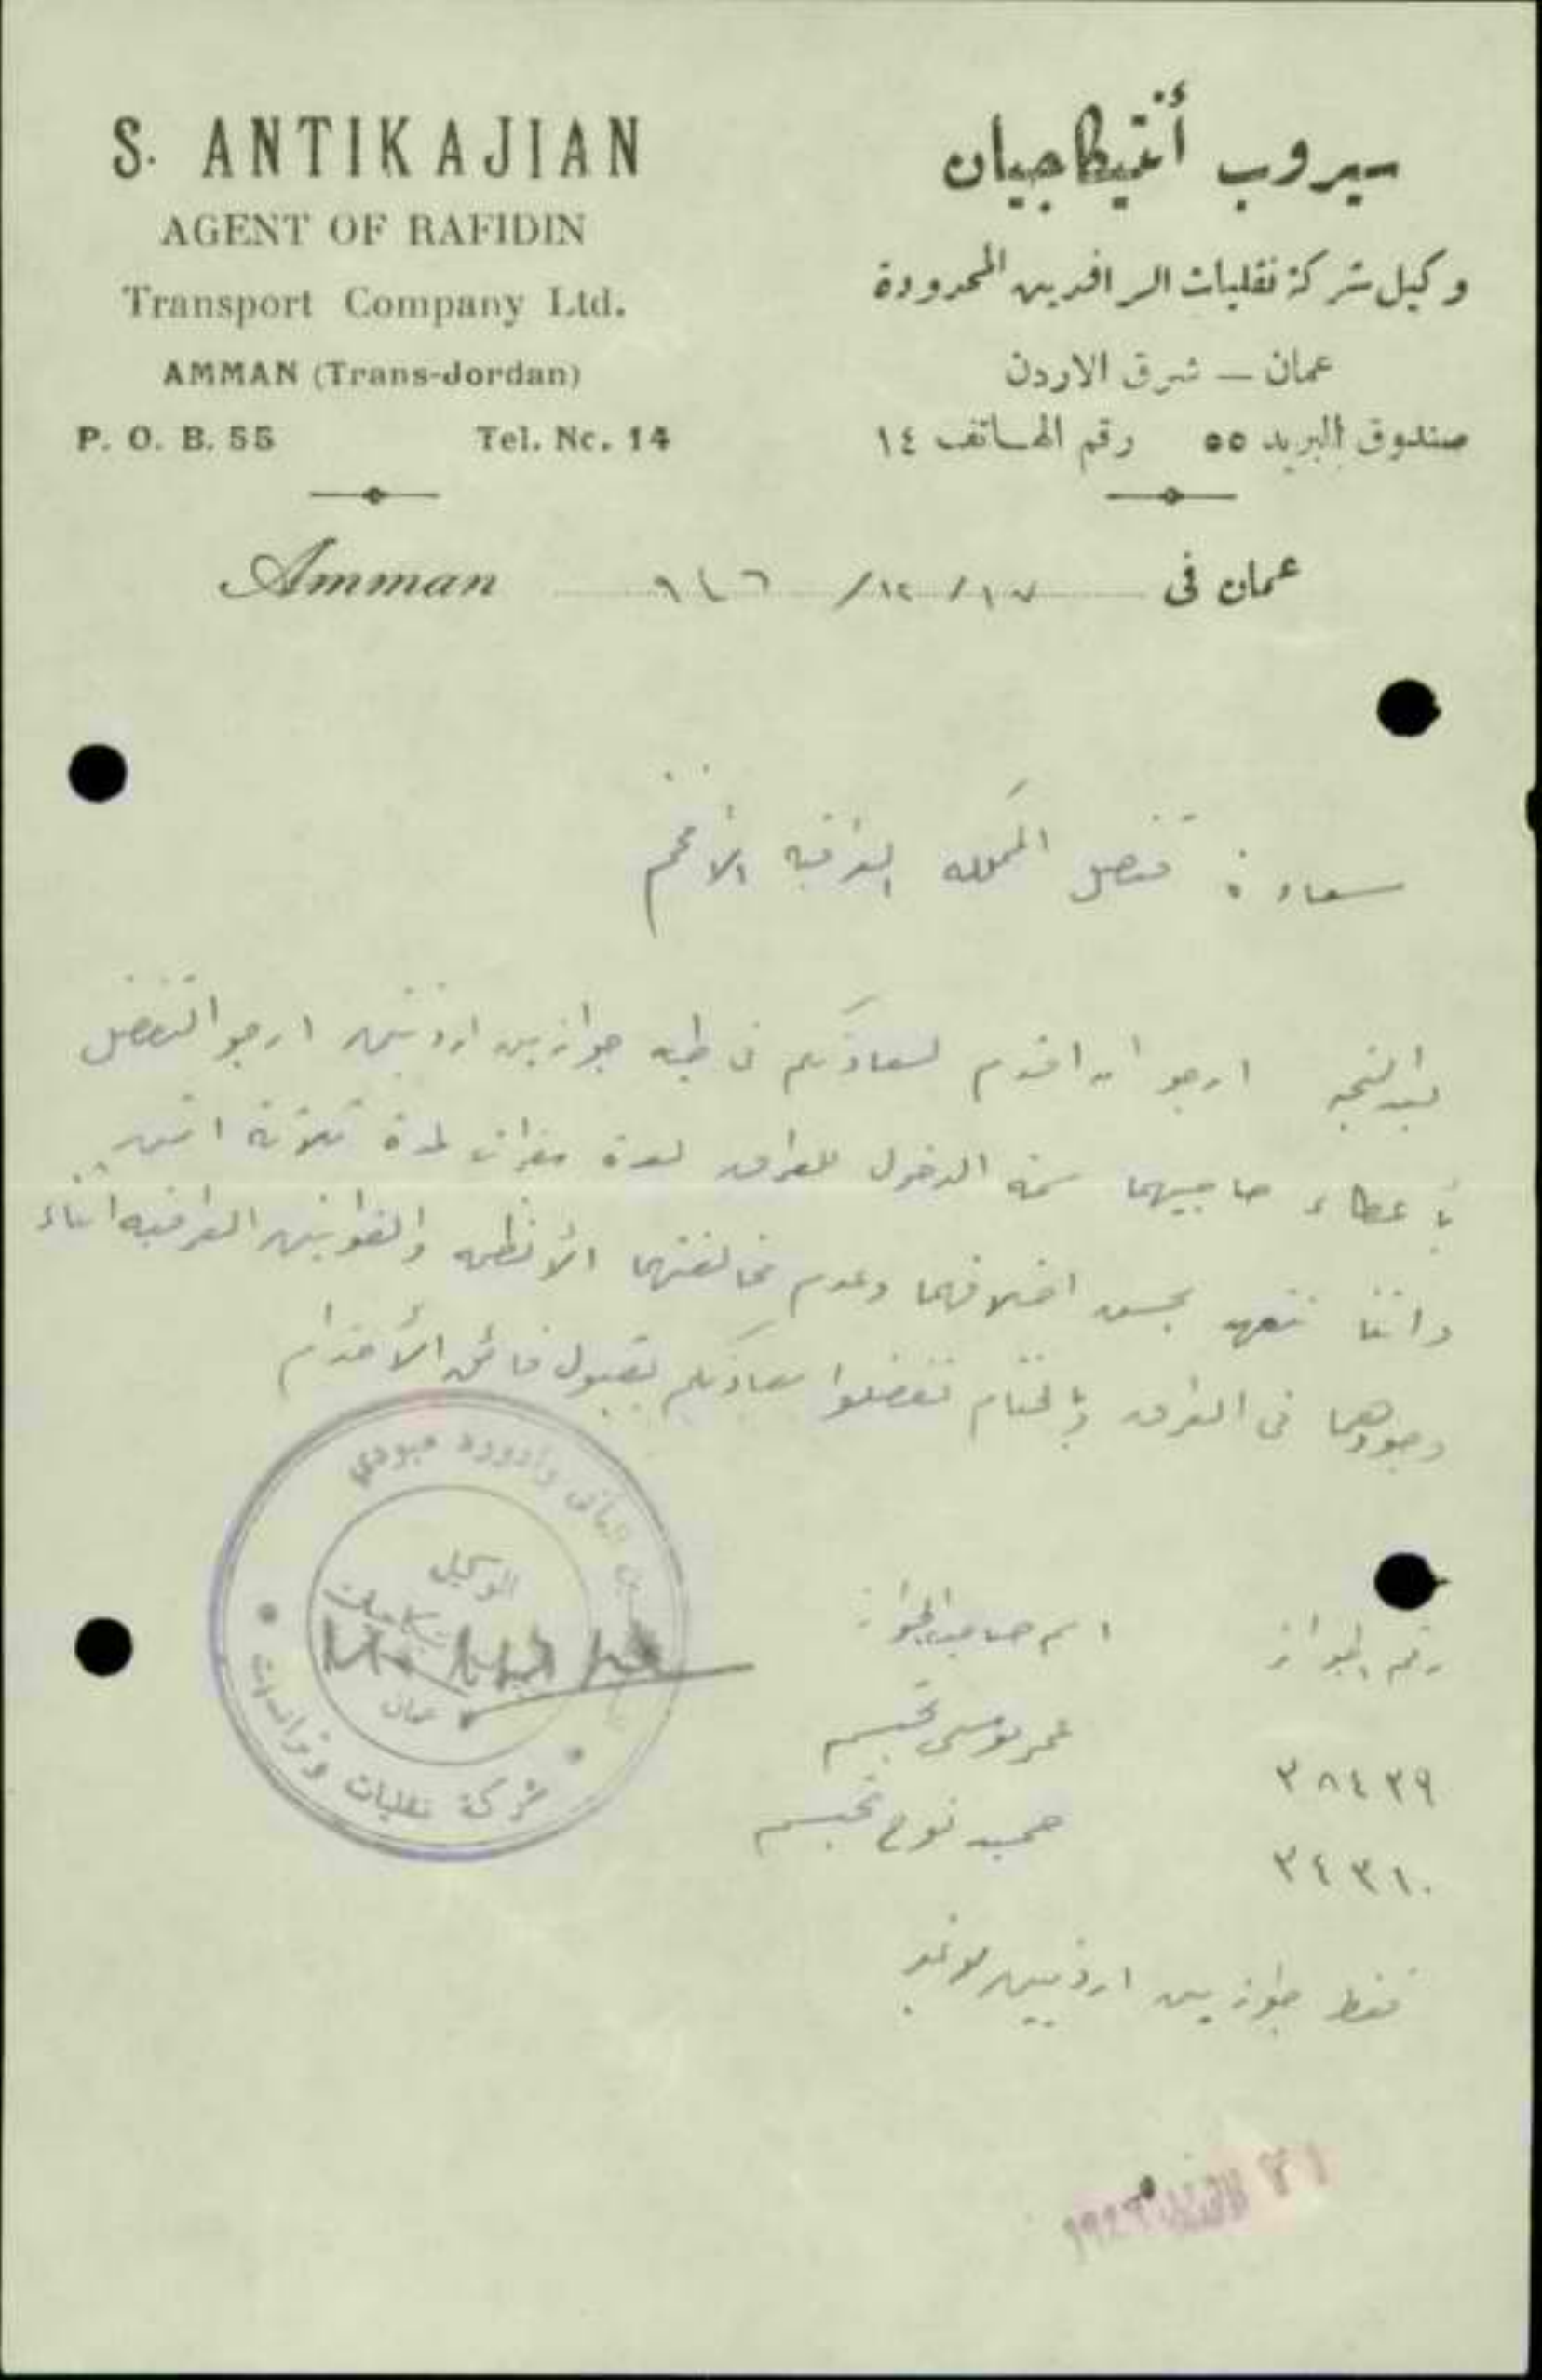 S. ANTIKAJIAN
AGENT OF RAFIDIN
Transport Company Ltd.
AMMAN (Trans-Jordan)
P. O. B. 55 Tel. No. 14
سيروب أنتيكاجيان
وكيل شركة نقليات الرافدين المحدودة
عمان – شرق الاردن
صندوق البريد ٥٥ رقم الهاتف ١٤
Amman عمان في ١٧/١٢/٩٤٦
سعادة قنصل المملكه العراقيه الافخم
بعد التحيه ارجو ان اقدم لسعادتكم في طيه جوازين اردنين ارجو التفضل
بأعطاء صاحبيهما سمة الدخول للعراق لعدة سفرات لمدة ثلاثة اشهر
واننا نتعهد بحسن اخلاقهما وعدم مخالفتهما الأنظمه والقوانين العراقيه اثناء
وجودهما في العراق وبالختام تفضلوا سعادتكم بقبول فائق الأحترام
رقم الجواز اسم صاحب الجواز
٣٨٤٣٩ عمر موسى
٣٤٣١٠ حميد نوح
فقط جوازين اردنيين لا غير
وادورد عبودي
الوكيل
عمان
شركة نقليات